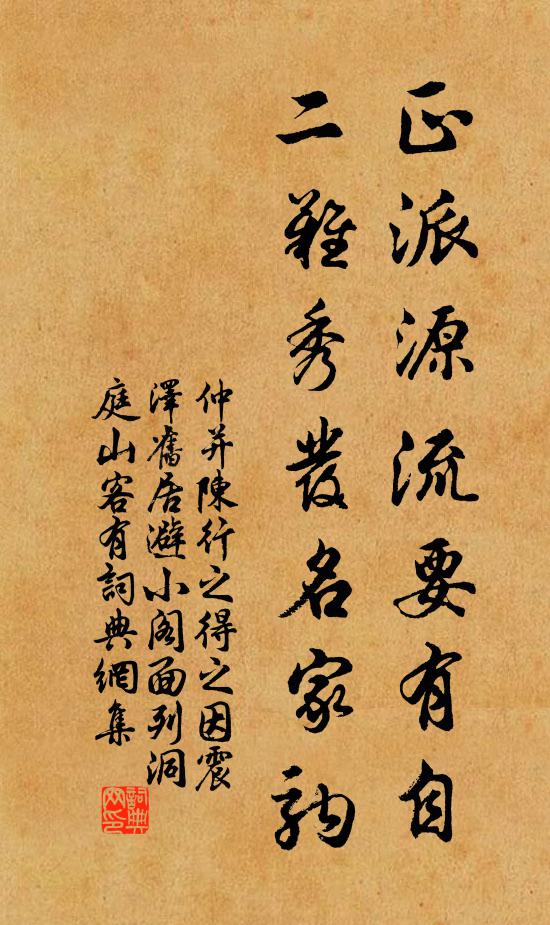 正派源流要有自
二難秀發名家駒
仲并陳行之得之因震
澤舊居避小閣面列洞
庭山客有詞典網集
詞典网印